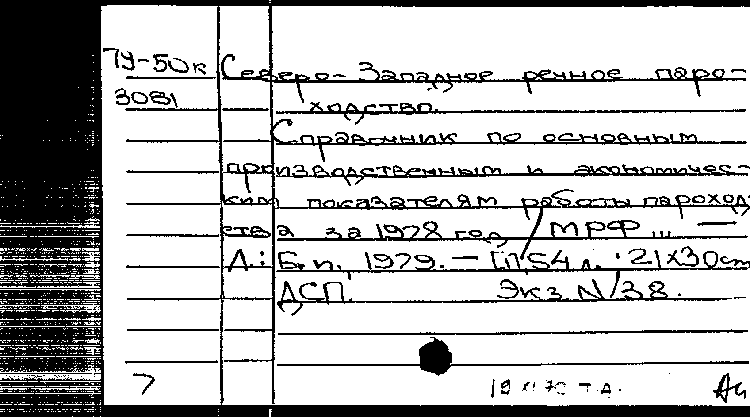 ТУ-50к Северо-Западное речное паро-
3081 ходство.
Справочник по основным
производственным и экономичес-
ким показателям работы пароход-
ства за 1978 год / МРФ ... —
Л.: Б.и., 1979. — [1], 54 л.; 21х30 см
ДСП. Экз. N 38.
7